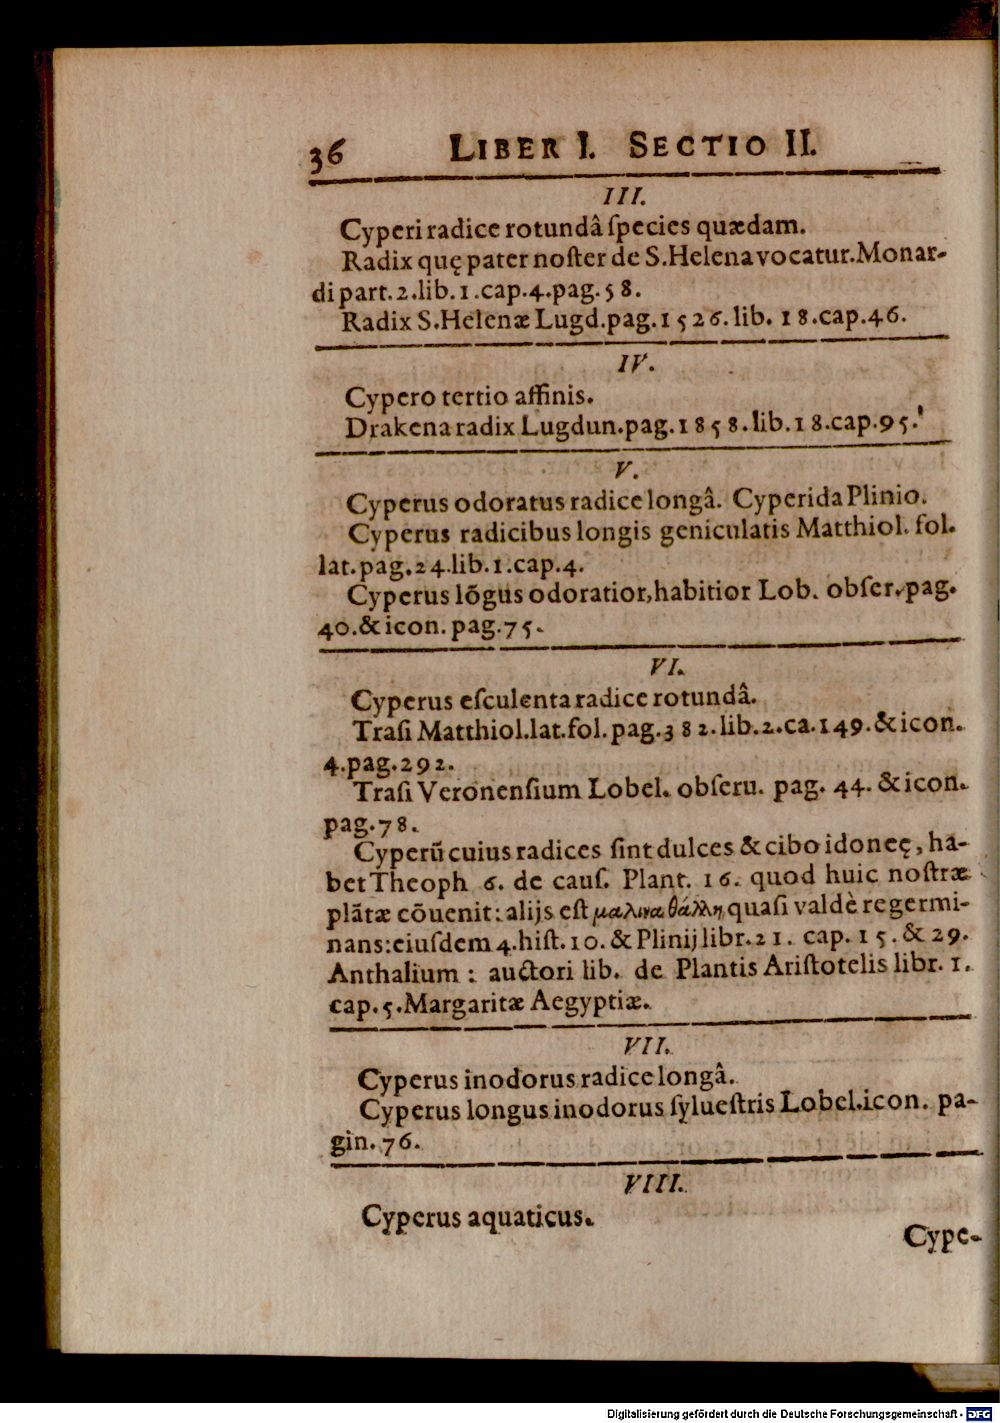 36 LIBER I. SECTIO II.
III.
Cyperi radice rotundâ ſpecies quædam.
Radix quę pater noſter de S. Helena vocatur. Monar-
di part. 2. lib. 1. cap. 4. pag. 58.
Radix S. Helenæ Lugd. pag. 1526. lib. 18. cap. 46.
IV.
Cypero tertio affinis.
Drakena radix Lugdun. pag. 1858. lib. 18. cap. 95.
V.
Cyperus odoratus radice longâ. Cyperida Plinio.
Cyperus radicibus longis geniculatis Matthiol. fol.
lat. pag. 24. lib. 1. cap. 4.
Cyperus lõgus odoratior, habitior Lob. obſer. pag.
40. & icon. pag. 75.
VI.
Cyperus eſculenta radice rotundâ.
Traſi Matthiol. lat. fol. pag. 382. lib. 2. ca. 149. & icon.
4. pag. 292.
Traſi Veronenſium Lobel. obſeru. pag. 44. & icon.
pag. 78.
Cyperũ cuius radices ſint dulces & cibo idoneę, ha-
bet Theoph 6. de cauſ. Plant. 16. quod huic noſtræ
plãtæ cõuenit: alijs eſt μαλιναθάλλη quaſi valdè regermi-
nans: eiuſdem 4. hiſt. 10. & Plinij libr. 21. cap. 15. & 29.
Anthalium : auctori lib. de Plantis Ariſtotelis libr. 1.
cap. 5. Margaritæ Aegyptiæ.
VII.
Cyperus inodorus radice longâ.
Cyperus longus inodorus ſylueſtris Lobel. icon. pa-
gin. 76.
VIII.
Cyperus aquaticus.
Cype-
Digitalisierung gefördert durch die Deutsche Forschungsgemeinschaft - DFG